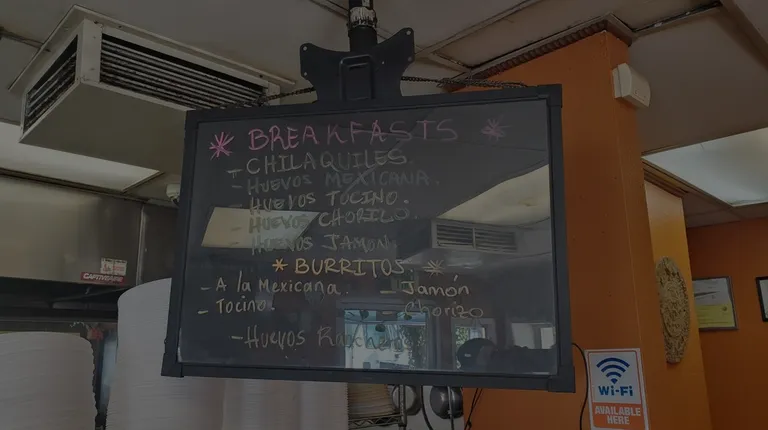 * BREAKFASTS *
- CHILAQUILES.
- HUEVOS MEXICANA.
- HUEVOS TOCINO.
- HUEVOS CHORIZO.
- HUEVOS JAMON.
* BURRITOS *
- A la Mexicana. - Jamón
- Tocino. - Chorizo
- Huevos
CAPTIVEAIRE
Wi-Fi
AVAILABLE
HERE